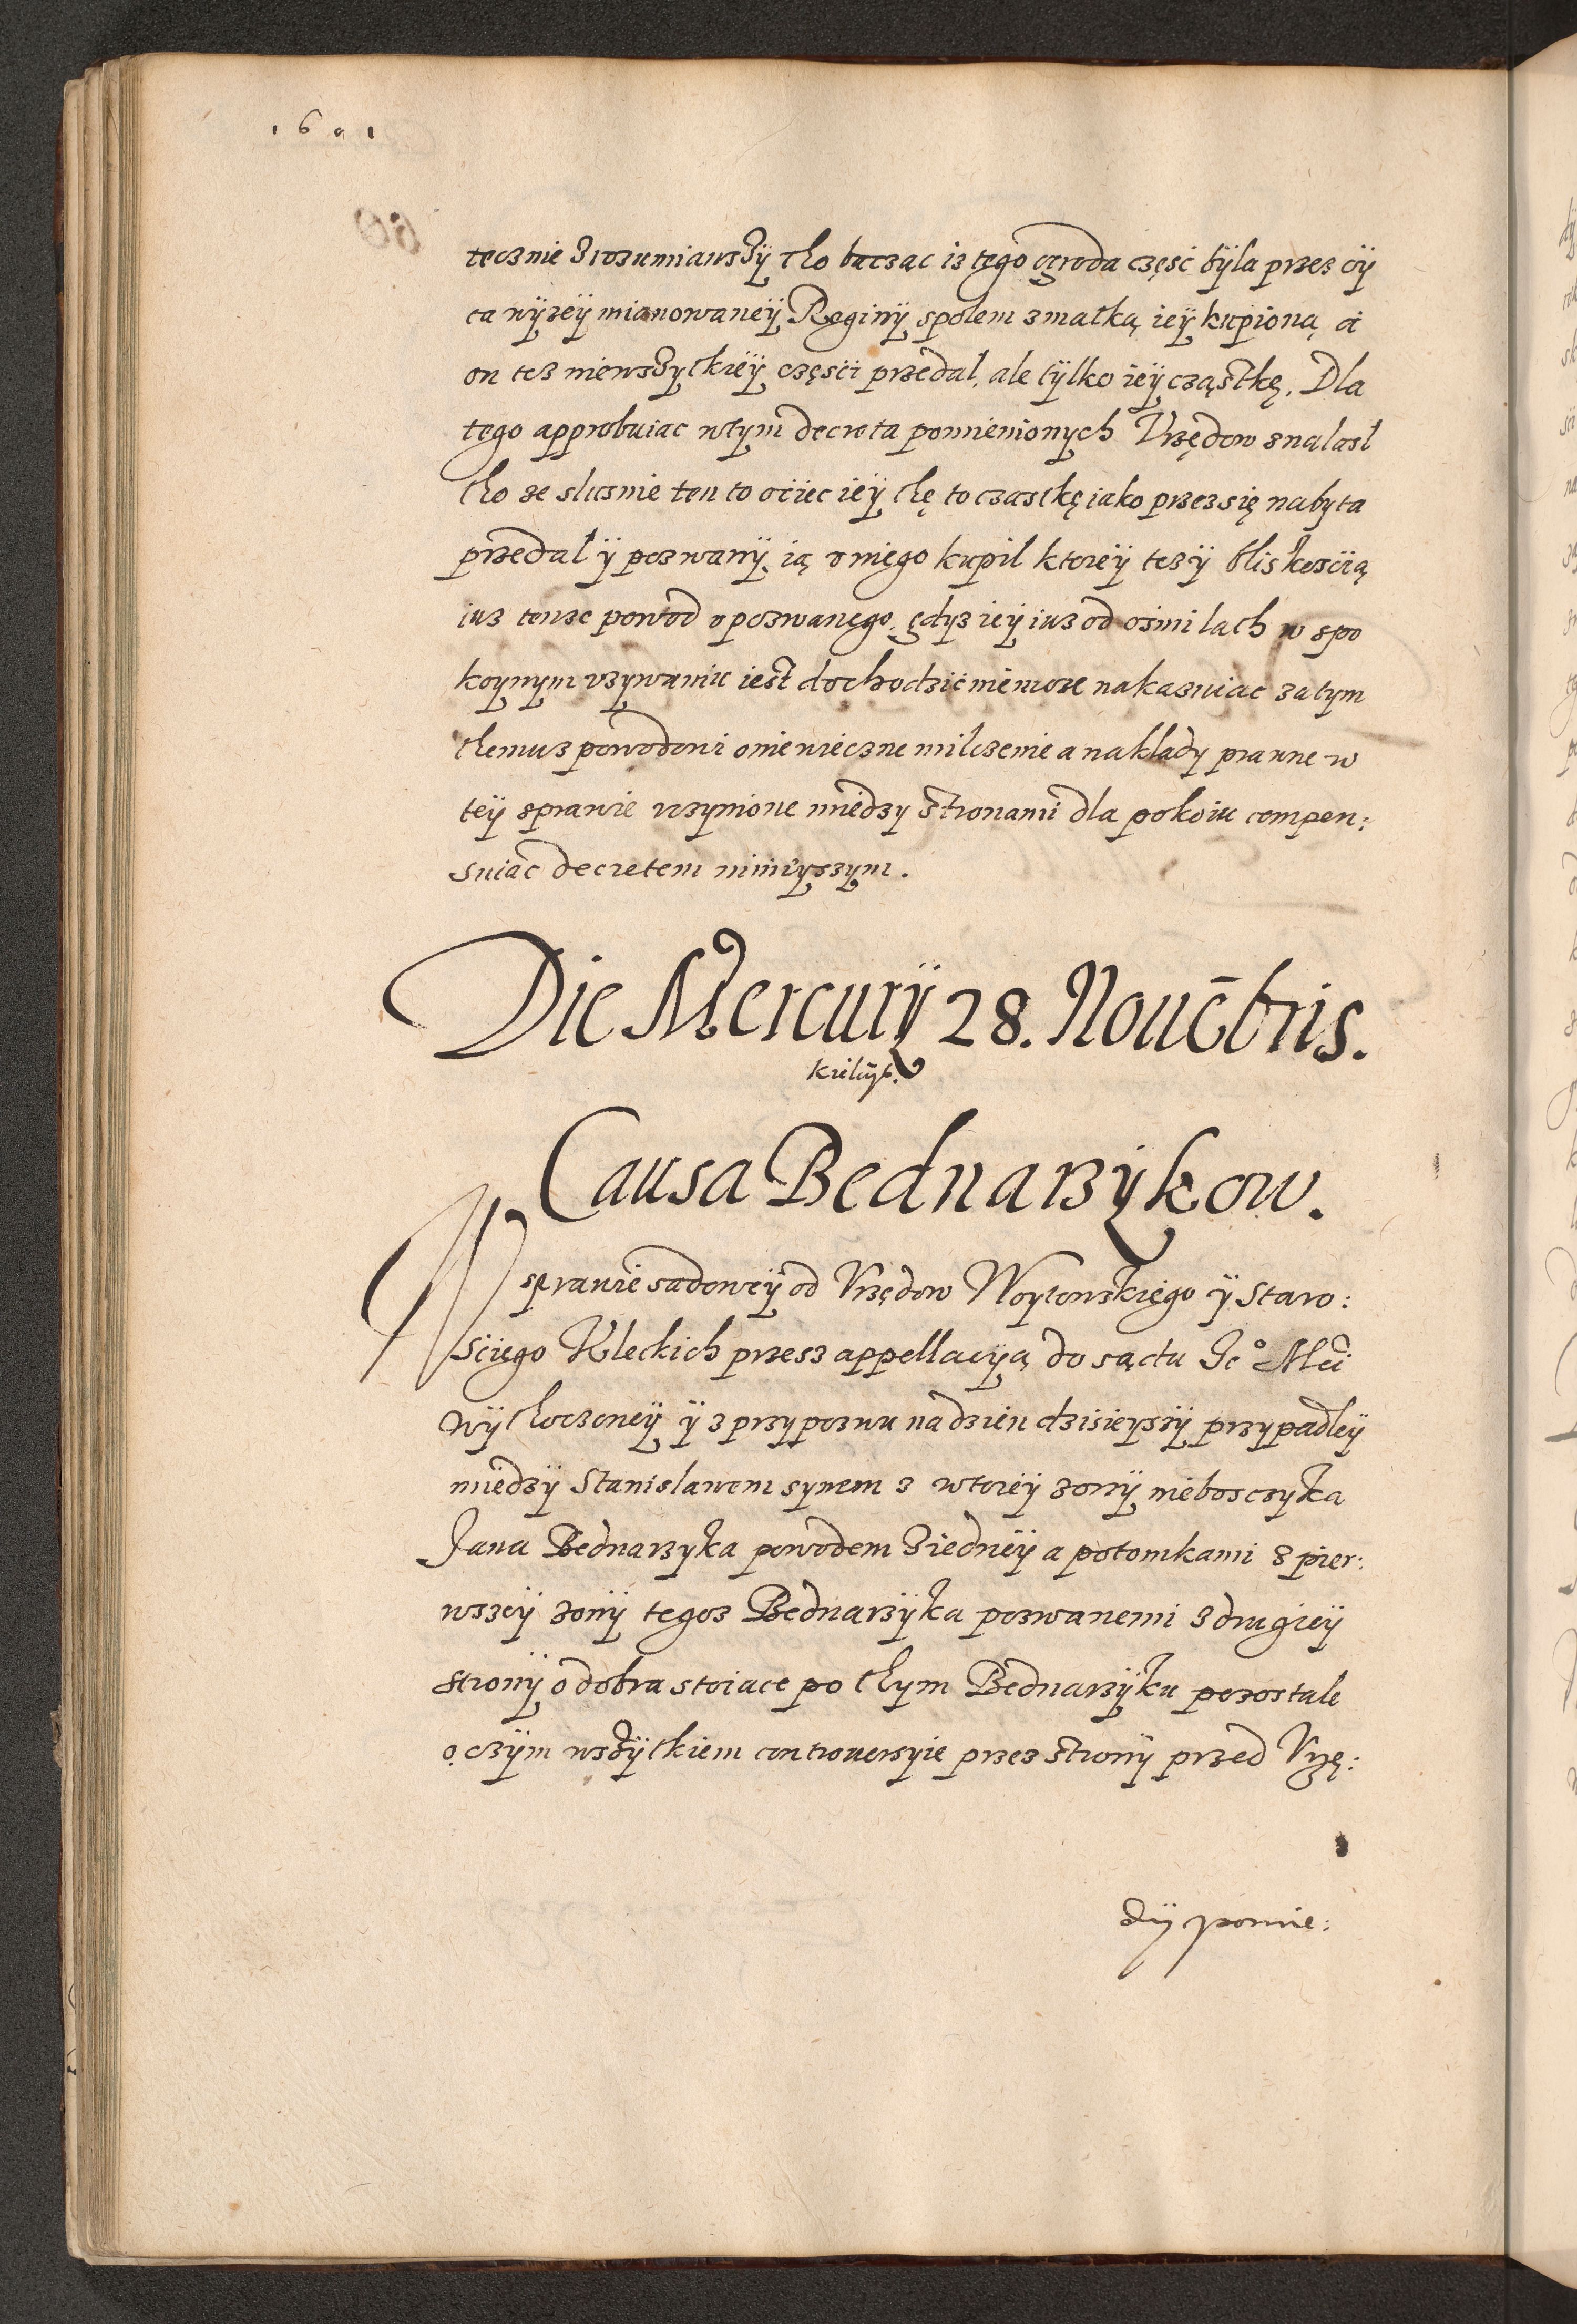 1601
tecznie zrozumiawszÿ tho baczac iz tego ogroda część bÿla przes oÿ
ca wÿzeÿ mianowaneÿ Reginÿ spolem z matką ieÿ kupioną a
on tez niewszytkieÿ części przedal, ale tÿlko ieÿ cząstkę. Dla
tego approbuiac wtym decreta pomienionych Vrzędow znalasl
tho ze slusnie ten to ociec ieÿ thę to czastkę iako przezsię nabyta
przedal ÿ pozwanÿ ią v niego kupil ktoreÿ tez ÿ bliskoscią
iuz tenze powod v pozwanego, gdyz ieÿ iuz od osmi lath w spo
koynym vzywaniu iest dochodzić niemoze nakazuiac zatym
themuz powodowi onie wieczne milczenie a naklady prawne w
teÿ sprawie vczynione miedzy stronami dla pokoiu compen:
suiac decretem ninieyszym.
Die Mercurÿ 28. Nouēbris.
Causa Bednarzÿkow.
W sprawie sadoweÿ od Vrzędow Woytowskiego ÿ Staro:
sciego Kleckich przesz appellacÿą do sądu Je° Mći
wÿthoczoneÿ ÿ z przypozwu na dzien dzisieyszÿ przypadleÿ
miedzÿ Stanislawem synem z wtoreÿ zonÿ nieboszczyka
Jana Bednarzyka powodem z iedneÿ a potomkami z pier:
wszeÿ zonÿ tegoz Bednarzÿka pozwanemi z drugieÿ
stronÿ o dobra stoiace po thym Bednarzÿku pozostale
o czÿm wszÿtkiem controuersyie przez stronÿ przed Vrzę:
dÿ pomie: